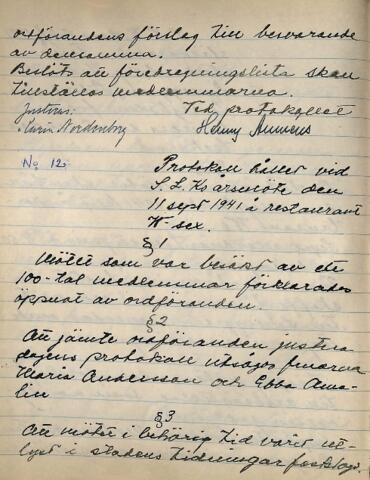 ordförandens förslag till bevarande
av densamma.
Beslöts att föredragningslista skall
tillställas medlemmarna.
Justeras: Vid protokollet
Karin Nordenborg Henny
No 12.
Protokoll hållet vid
S. L. Ks årsmöte den
11 sept 1941 å restaurant
W-sex.
§1
Mötet som var besökt av ett
100-tal medlemmar förklarades
öppnat av ordföranden.
§2
Att jämte ordföranden justera
dagens protokoll utsågos fruarna
Maria Andersson och Ebba Ama-
lin
§3
Att mötet i behörig tid varit ut-
lyst i stadens tidningar fastslogs.